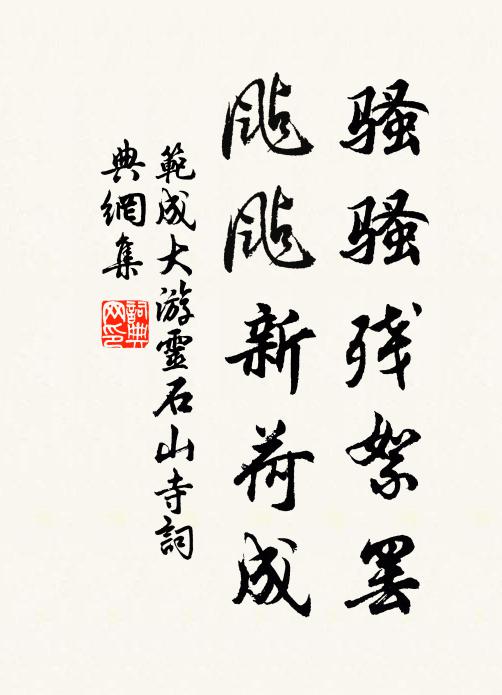 骚骚残絮罢
飐飐新荷成
範成大游靈石山寺詞
典網集
詞典网印